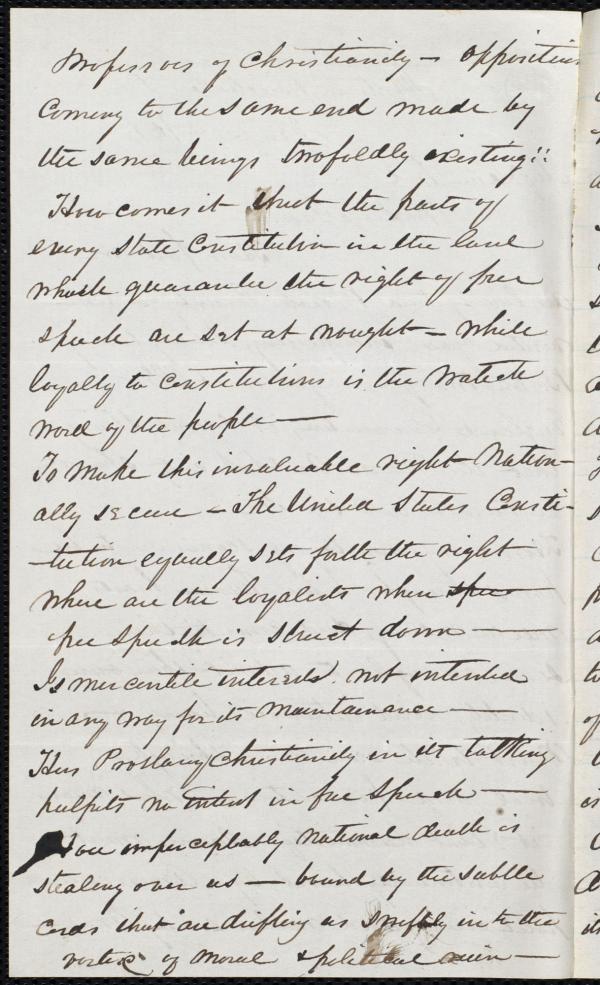 Professors of Christianity – opposition
Coming to the same end made by
the same beings twofoldly existing!!
How comes it that the parts of
every State Constitution in the land
which guarantee the right of free
speech are set at nought – while
loyalty to constitutions is the watch
word of the people —
To make this invaluable right Nation-
ally secure – The United States Consti-
-tution equally sets forth the right
Where are the loyalists when spee
free speech is struct down —
Is mercentile interests not intended
in any way for its maintainance —
Has Proslavery Christianity in its talking
pulpits no intent in free speech —
How imperceptably national death is
stealing over us — bound by the subtle
cords that are drifting us swiftly in to the
vortex of moral & political ruin —